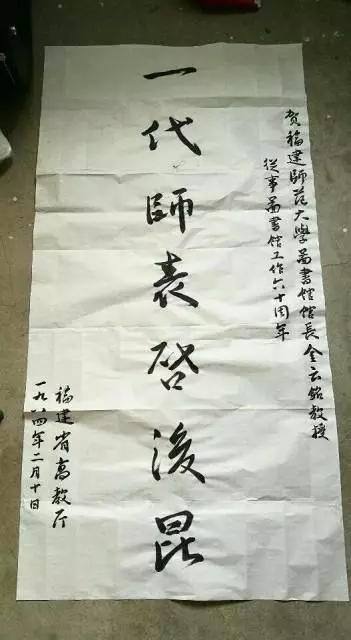 賀福建師范大學圖書館館長金云銘教授
從事圖書館工作六十周年
一代師表啓後昆
福建省高教厅
一九八四年二月十日